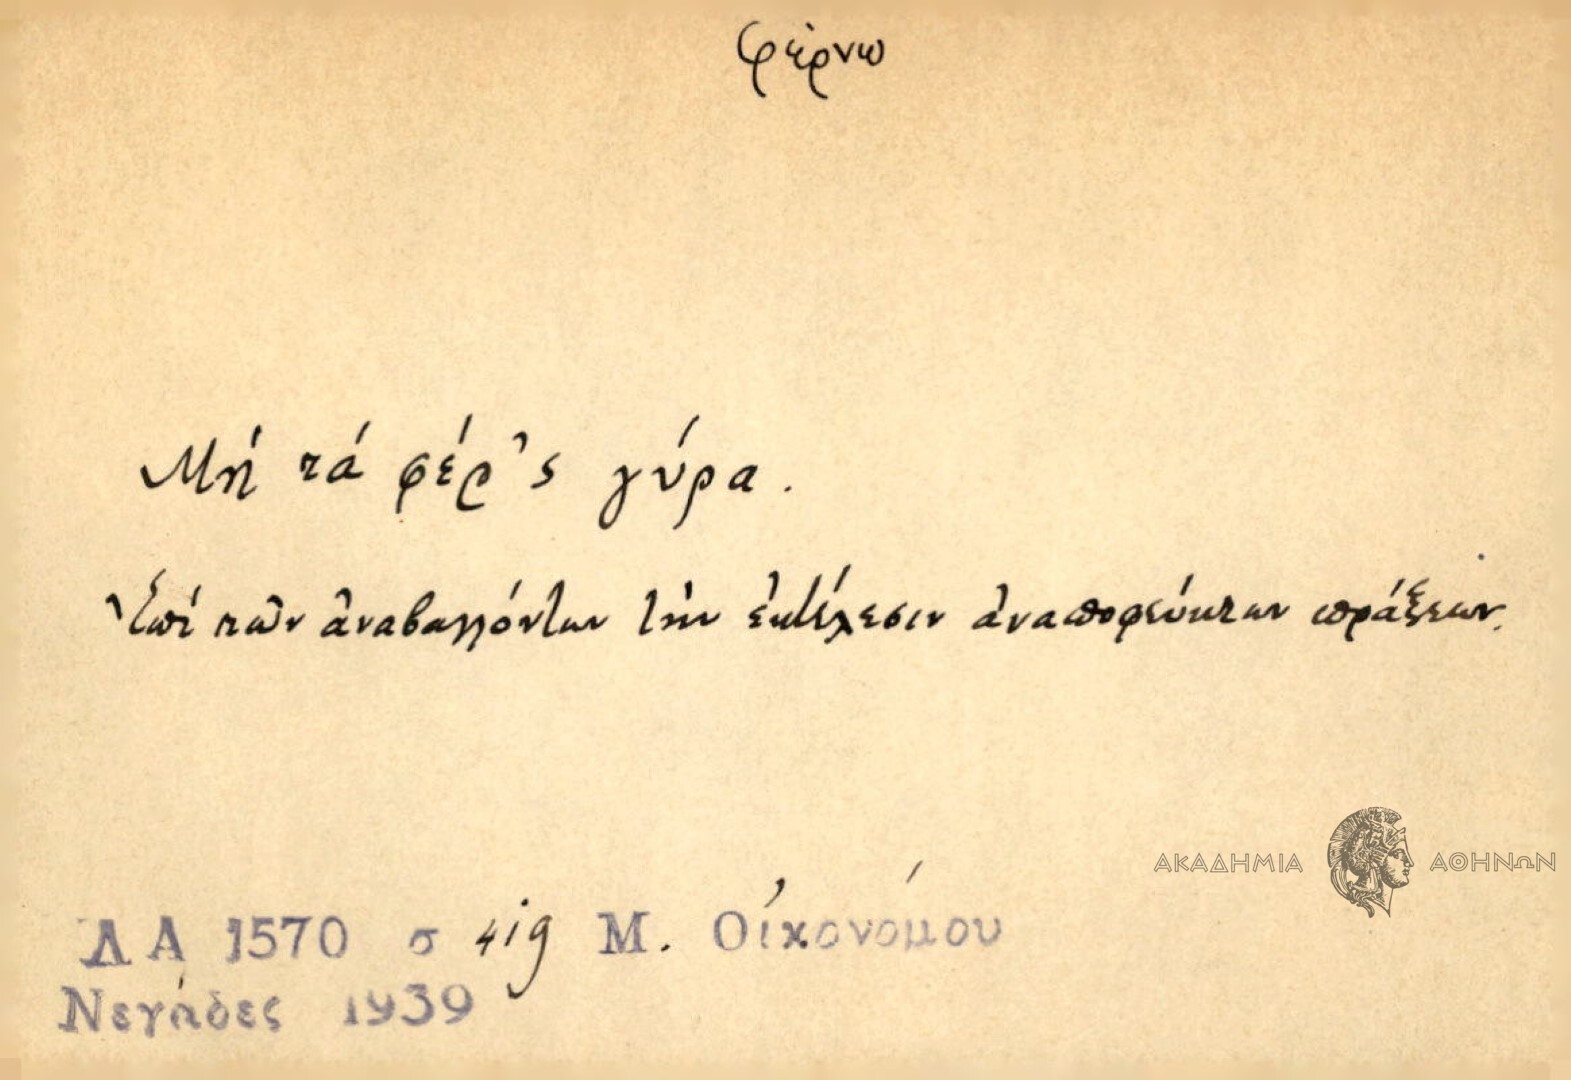 φέρνω
Μή τά φέρ'ς γύρα.
Ἐπί τῶν ἀναβαλλόντων τήν ἐκτέλεσιν ἀναποφεύκτων πράξεων.
ΑΚΑΔΗΜΙΑ ΑΘΗΝΩΝ
ΛΑ 1570 σ 419 Μ. Οἰκονόμου
Νεγάδες 1939